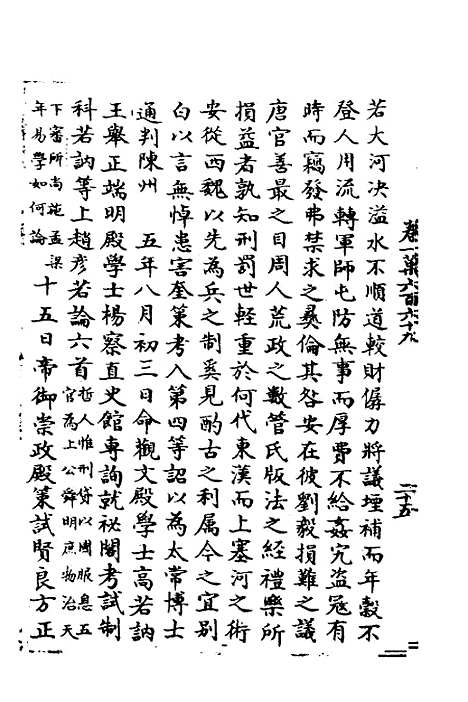 若大河决溢水不順道較財僝力將議堙補而年穀不
登人用流轉軍師屯防無事而厚費不給姦宄盜冦有
時而竊發弗禁求之彞倫其咎安在彼劉毅損難之議
唐官善最之目周人荒政之數管氏版法之經禮樂所
損益者孰知刑罰世輕重於何代東漢而上塞河之術
安從西魏以先為兵之制奚見酌古之利属今之宜别
白以言無悼患害奎策考入第四等詔以為太常博士
通判陳州 五年八月初三日命觀文殿學士高若訥
王舉正端明殿學士楊察直史館專詢就祕閣考試制
科若訥等上趙彦若論六首哲人惟刑貸以國服息五
官為上公舜明庶物治天
下審所尚苑孟梁
年易學如何論十五日帝御崇政殿策試賢良方正
卷一萬六百六十九
二十五